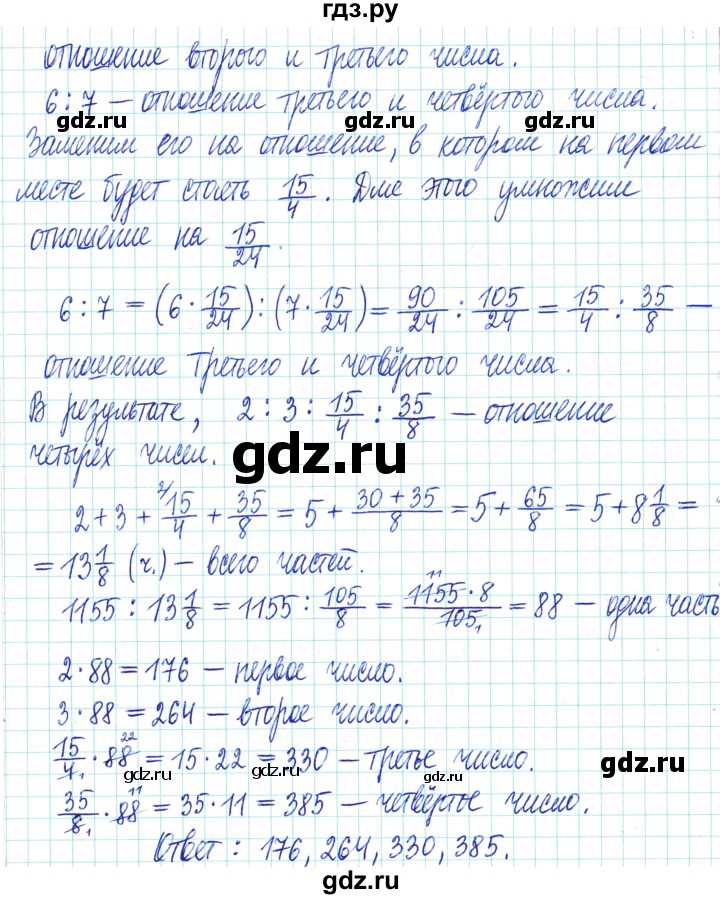 гдз.ру
отношение второго и третьего числа.
6 : 7 — отношение третьего и четвёртого числа.
gdz.ru gdz.ru
Заменим его на отношение, в котором на первом
месте будет стоять 15/4. Для этого умножим
отношение на 15/24.
gdz.ru gdz.ru
6 : 7 = (6 · 15/24) : (7 · 15/24) = 90/24 : 105/24 = 15/4 : 35/8 —
отношение третьего и четвёртого числа.
gdz.ru gdz.ru
В результате, 2 : 3 : 15/4 : 35/8 — отношение
четырёх чисел.
gdz.ru
2 + 3 + 2/15/4 + 35/8 = 5 + 30 + 35/8 = 5 + 65/8 = 5 + 8 1/8 =
= 13 1/8 (ч.) — всего частей.
gdz.ru gdz.ru
1155 : 13 1/8 = 1155 : 105/8 = 11 1155 · 8/105 1 = 88 — одна часть
2 · 88 = 176 — первое число.
gdz.ru gdz.ru
3 · 88 = 264 — второе число.
15/4 1 · 88 22 = 15 · 22 = 330 — третье число.
gdz.ru gdz.ru gdz.ru gdz.ru
35/8 1 · 88 11 = 35 · 11 = 385 — четвёртое число.
Ответ : 176, 264, 330, 385.
gdz.ru